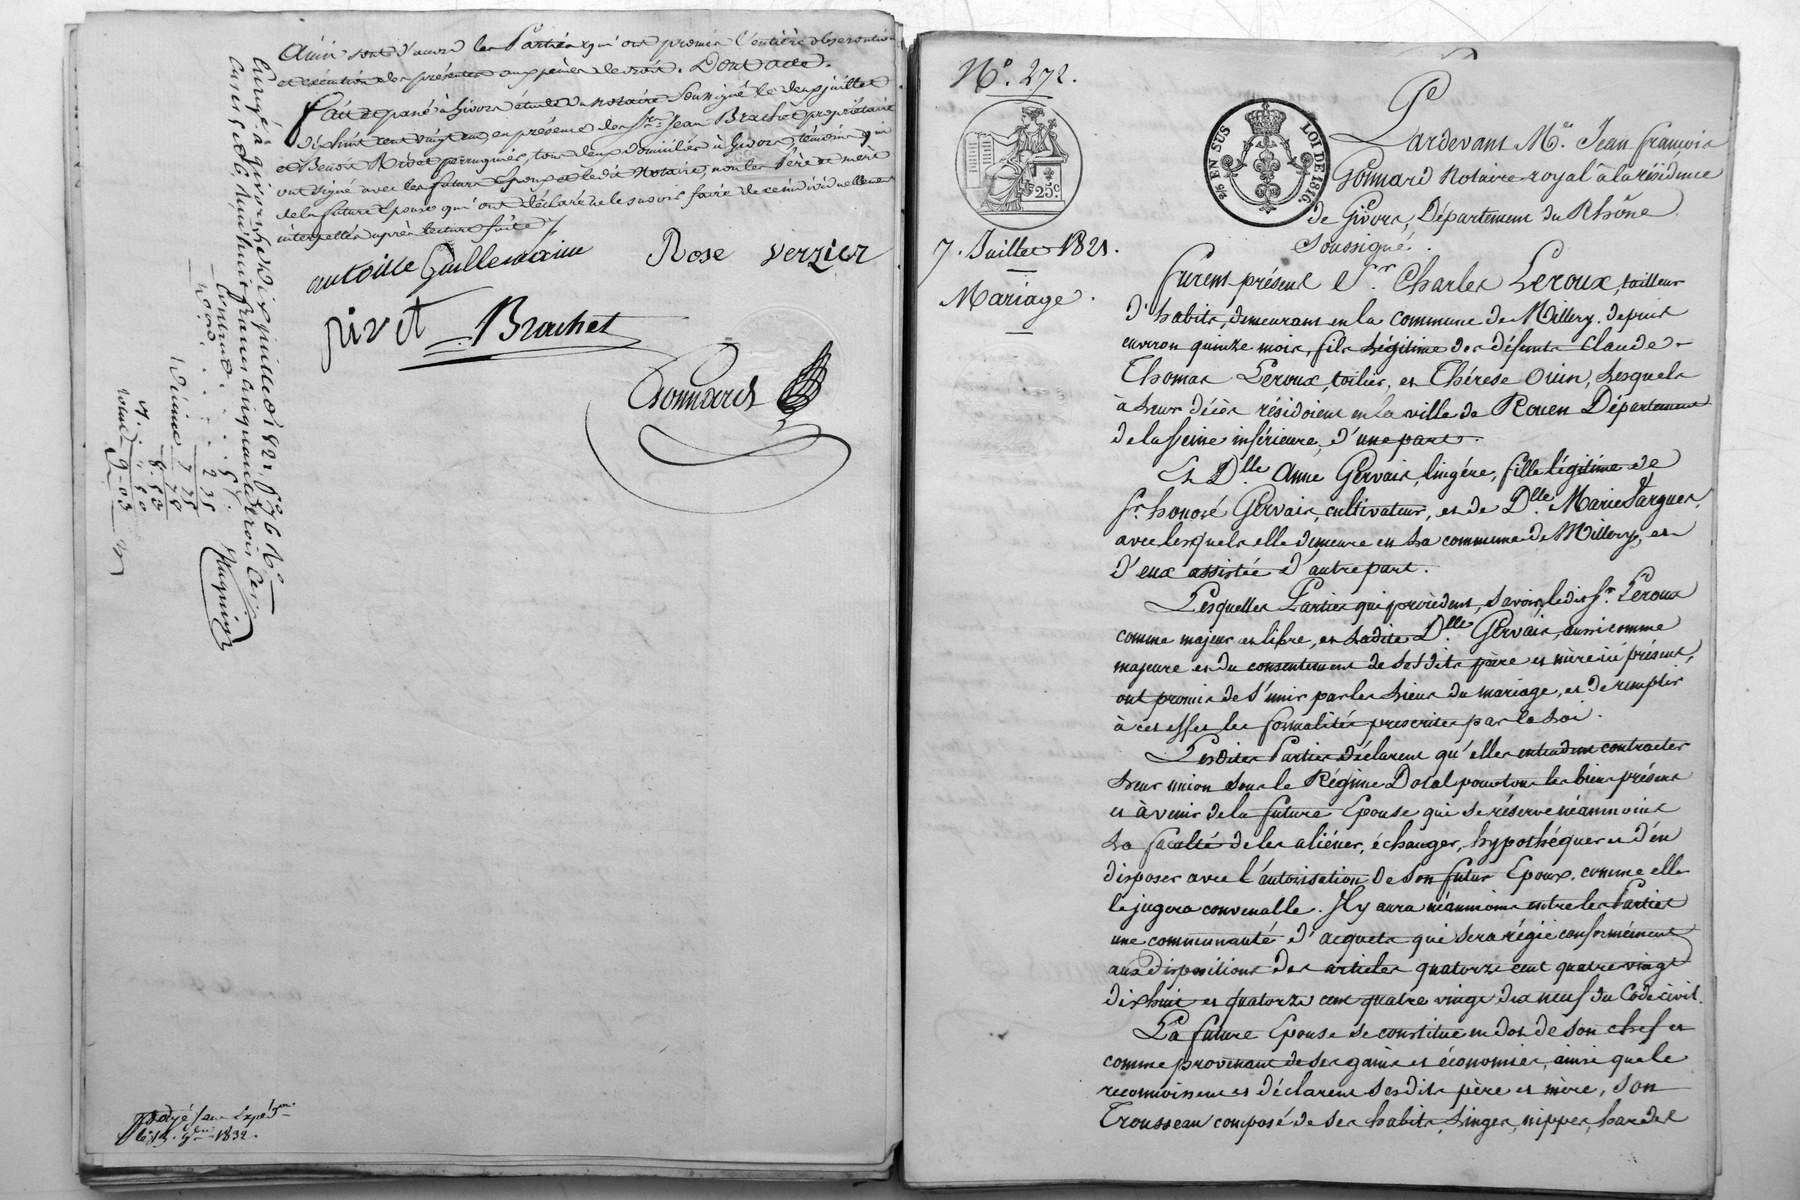 Ainsi sont d'accord les Parties qui ont promis l'entière observation
et exécution des présentes aux peines de droit. Dont acte.
Fait et passé à Givors étude du notaire soussigné le deux juillet
dix huit cent vingt un, en présence des Srs. Jean Brachet propriétaire
et Benoit Rivet perruquier, tous deux domiciliés à Givors, témoins qui
ont signé avec les futurs Epoux et ledit Notaire, non les Père et mère
de la future Epouse qui ont déclaré ne le savoir faire de ce individuellement
interpellés après lecture faite.
antoine Guillermain Rose verzier
rivet Brachet
Gonnard
Enregé à Givors le dix juillet 1821 fo 76 Ro
2 35
7 75
8.53
50
9-03
le 15. 1832.
No. 272.
25c.
7. Juillet 1821.
Mariage.
2/5 EN SUS LOI DE 1816.
Pardevant Me. Jean François
Gonnard Notaire royal à la résidence
de Givors, Département du Rhône
Soussigné.
Furent présent Sr. Charles Leroux, tailleur
d'habits, demeurant en la commune de Millery depuis
environ quinze mois, fils légitime des défunts Claude
Thomas Leroux, toilier, et Thérese Ouin, lesquels
à leurs décès résidoient en la ville de Rouen Département
de la Seine inférieure, d'une part.
Et Dlle. Anne Gervais, lingère, fille légitime de
Sr. honoré Gervais, cultivateur, et de Dlle. Marie Fargues,
avec lesquels elle demeure en la commune de Millery, et
d'eux assistée d'autre part.
Lesquelles Parties qui procèdent, savoir, ledit Sr. Leroux
comme majeur et libre, et ladite Dlle. Gervais, aussi comme
majeure et du consentement de sesdits père et mère ici présent,
ont promis de s'unir par les liens du mariage, et de remplir
à cet effet les formalités prescrites par la Loi.
Lesdites Parties déclarent qu'elles entendent contracter
leur union sous le Régime Dotal pour tous les biens présens
et à venir de la future Epouse qui se réserve néanmoins
la faculté de les aliéner, échanger, hypothéquer et d'en
disposer avec l'autorisation de son futur Epoux, comme elle
le jugera convenable. Il y aura néanmoins entre les Parties
une communauté d'acquets qui sera régie conformément
aux dispositions des articles quatorze cent quatre vingt
dix huit et quatorze cent quatre vingt dix neuf du Code civil.
La future Epouse se constitue en dot de son chef et
comme provenant de ses gains et économies, ainsi que le
reconnoissent et déclarent sesdits père et mère, son
Trousseau composé de ses habits, linges, nippes, hardes